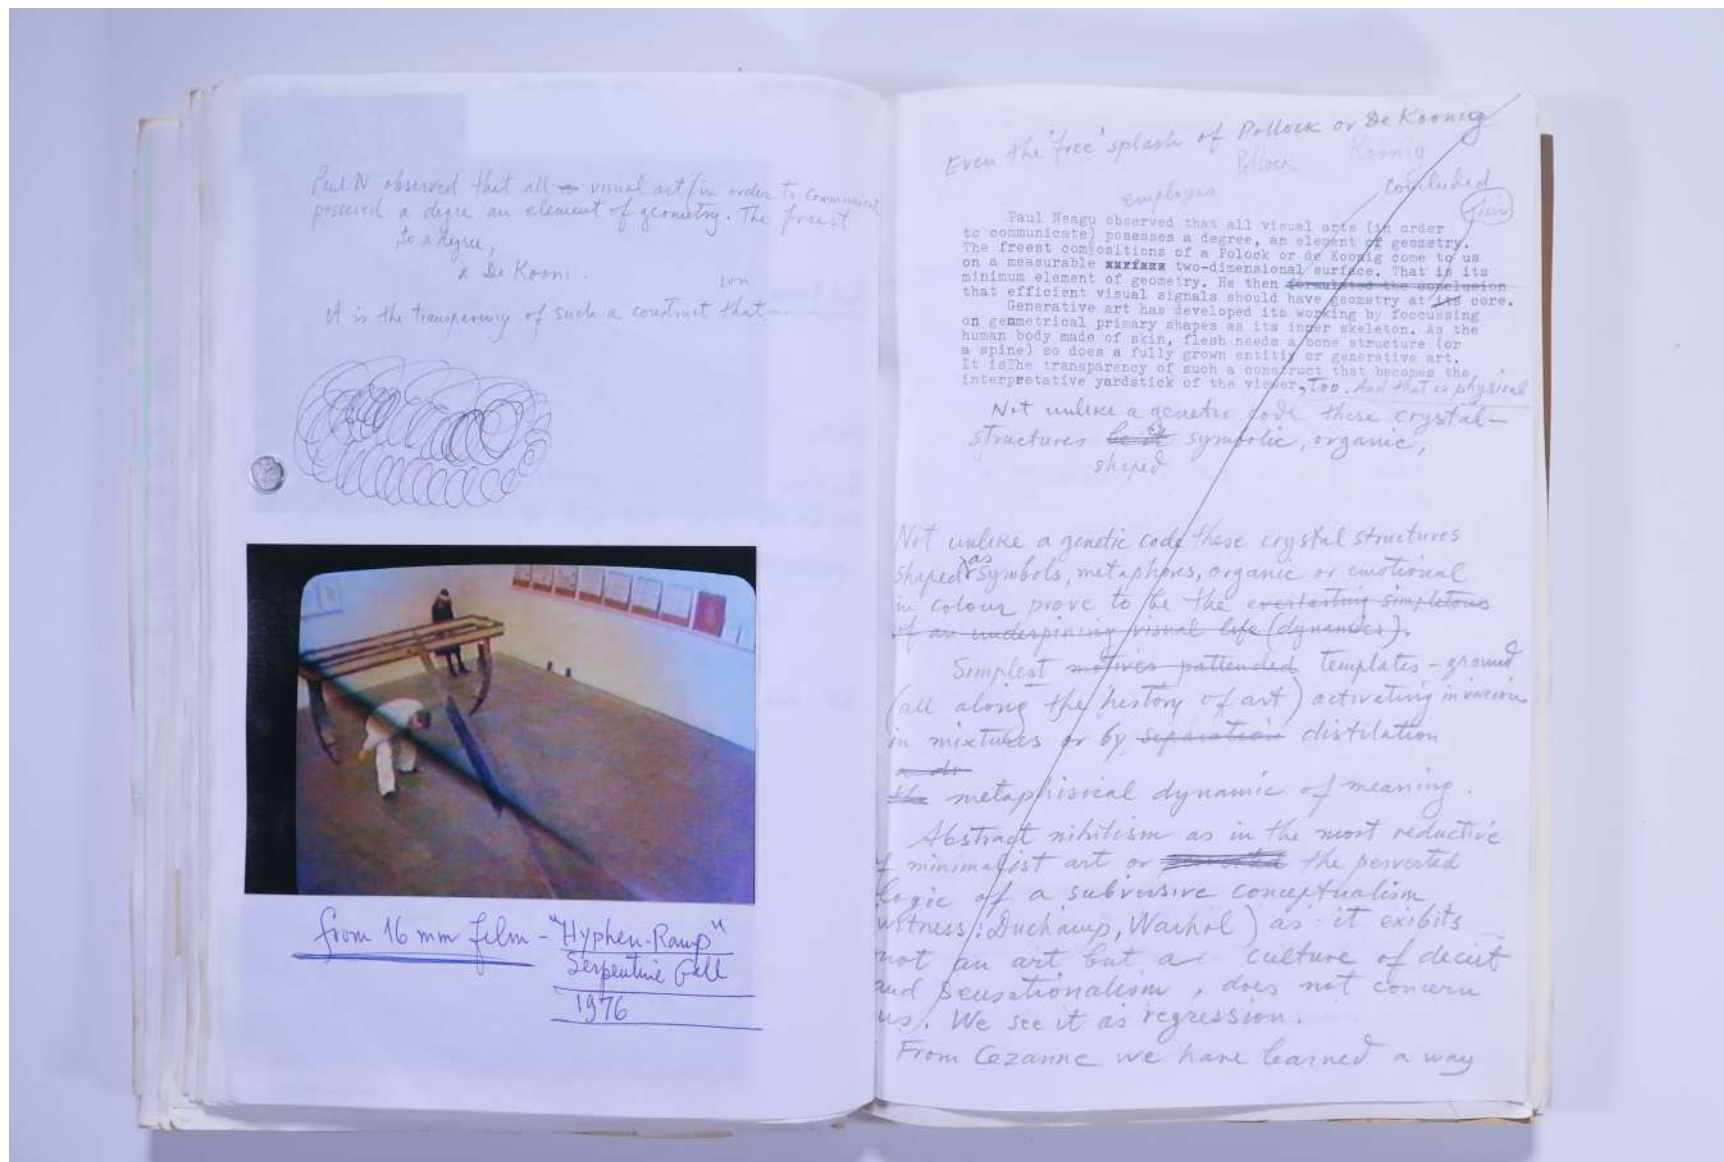 Paul N observed that all visual art (in order to communicate
possesed a degre an element of geometry. The freest
to a degree,
a De Kooni.
It is the transparency of such a construct that
from 16 mm film - "Hyphen-Ramp"
Serpentine Gall
1976
Even the 'free' splash of Pollock or De Koonig
Pollock Koonig
employes
concluded
Paul Neagu observed that all visual arts (in order
to communicate) posesses a degree, an element of geometry.
The freest compositions of a Polock or de Koonig come to us
on a measurable two-dimensional surface. That is its
minimum element of geometry. He then formulated the conclusion
that efficient visual signals should have geometry at its core.
Generative art has developed its working by foccussing
on geometrical primary shapes as its inner skeleton. As the
human body made of skin, flesh needs a bone structure (or
a spine) so does a fully grown entitiy or generative art.
It isThe transparency of such a construct that becomes the
interpretative yardstick of the viewer, too. And that is physical
Not unlike a genetic code these crystal-
structures be it symbolic, organic,
shaped
Not unlike a genetic code these crystal structures
shaped as symbols, metaphores, organic or emotional
in colour prove to be the everlasting simpletons
of an underpining visual life (dynamics).
Simplest motives templates - ground
(all along the history of art) activating in various
in mixtures or by separation distilation
the metaphisical dynamic of meaning.
Abstract nihilism as in the most reductive
of minimalist art or the perverted
logic of a subversive conceptualism
witness: Duchamp, Warhol) as it exibits
not an art but a culture of deceit
and sensationalism, does not concern
us. We see it as regression.
From Cezanne we have learned a way